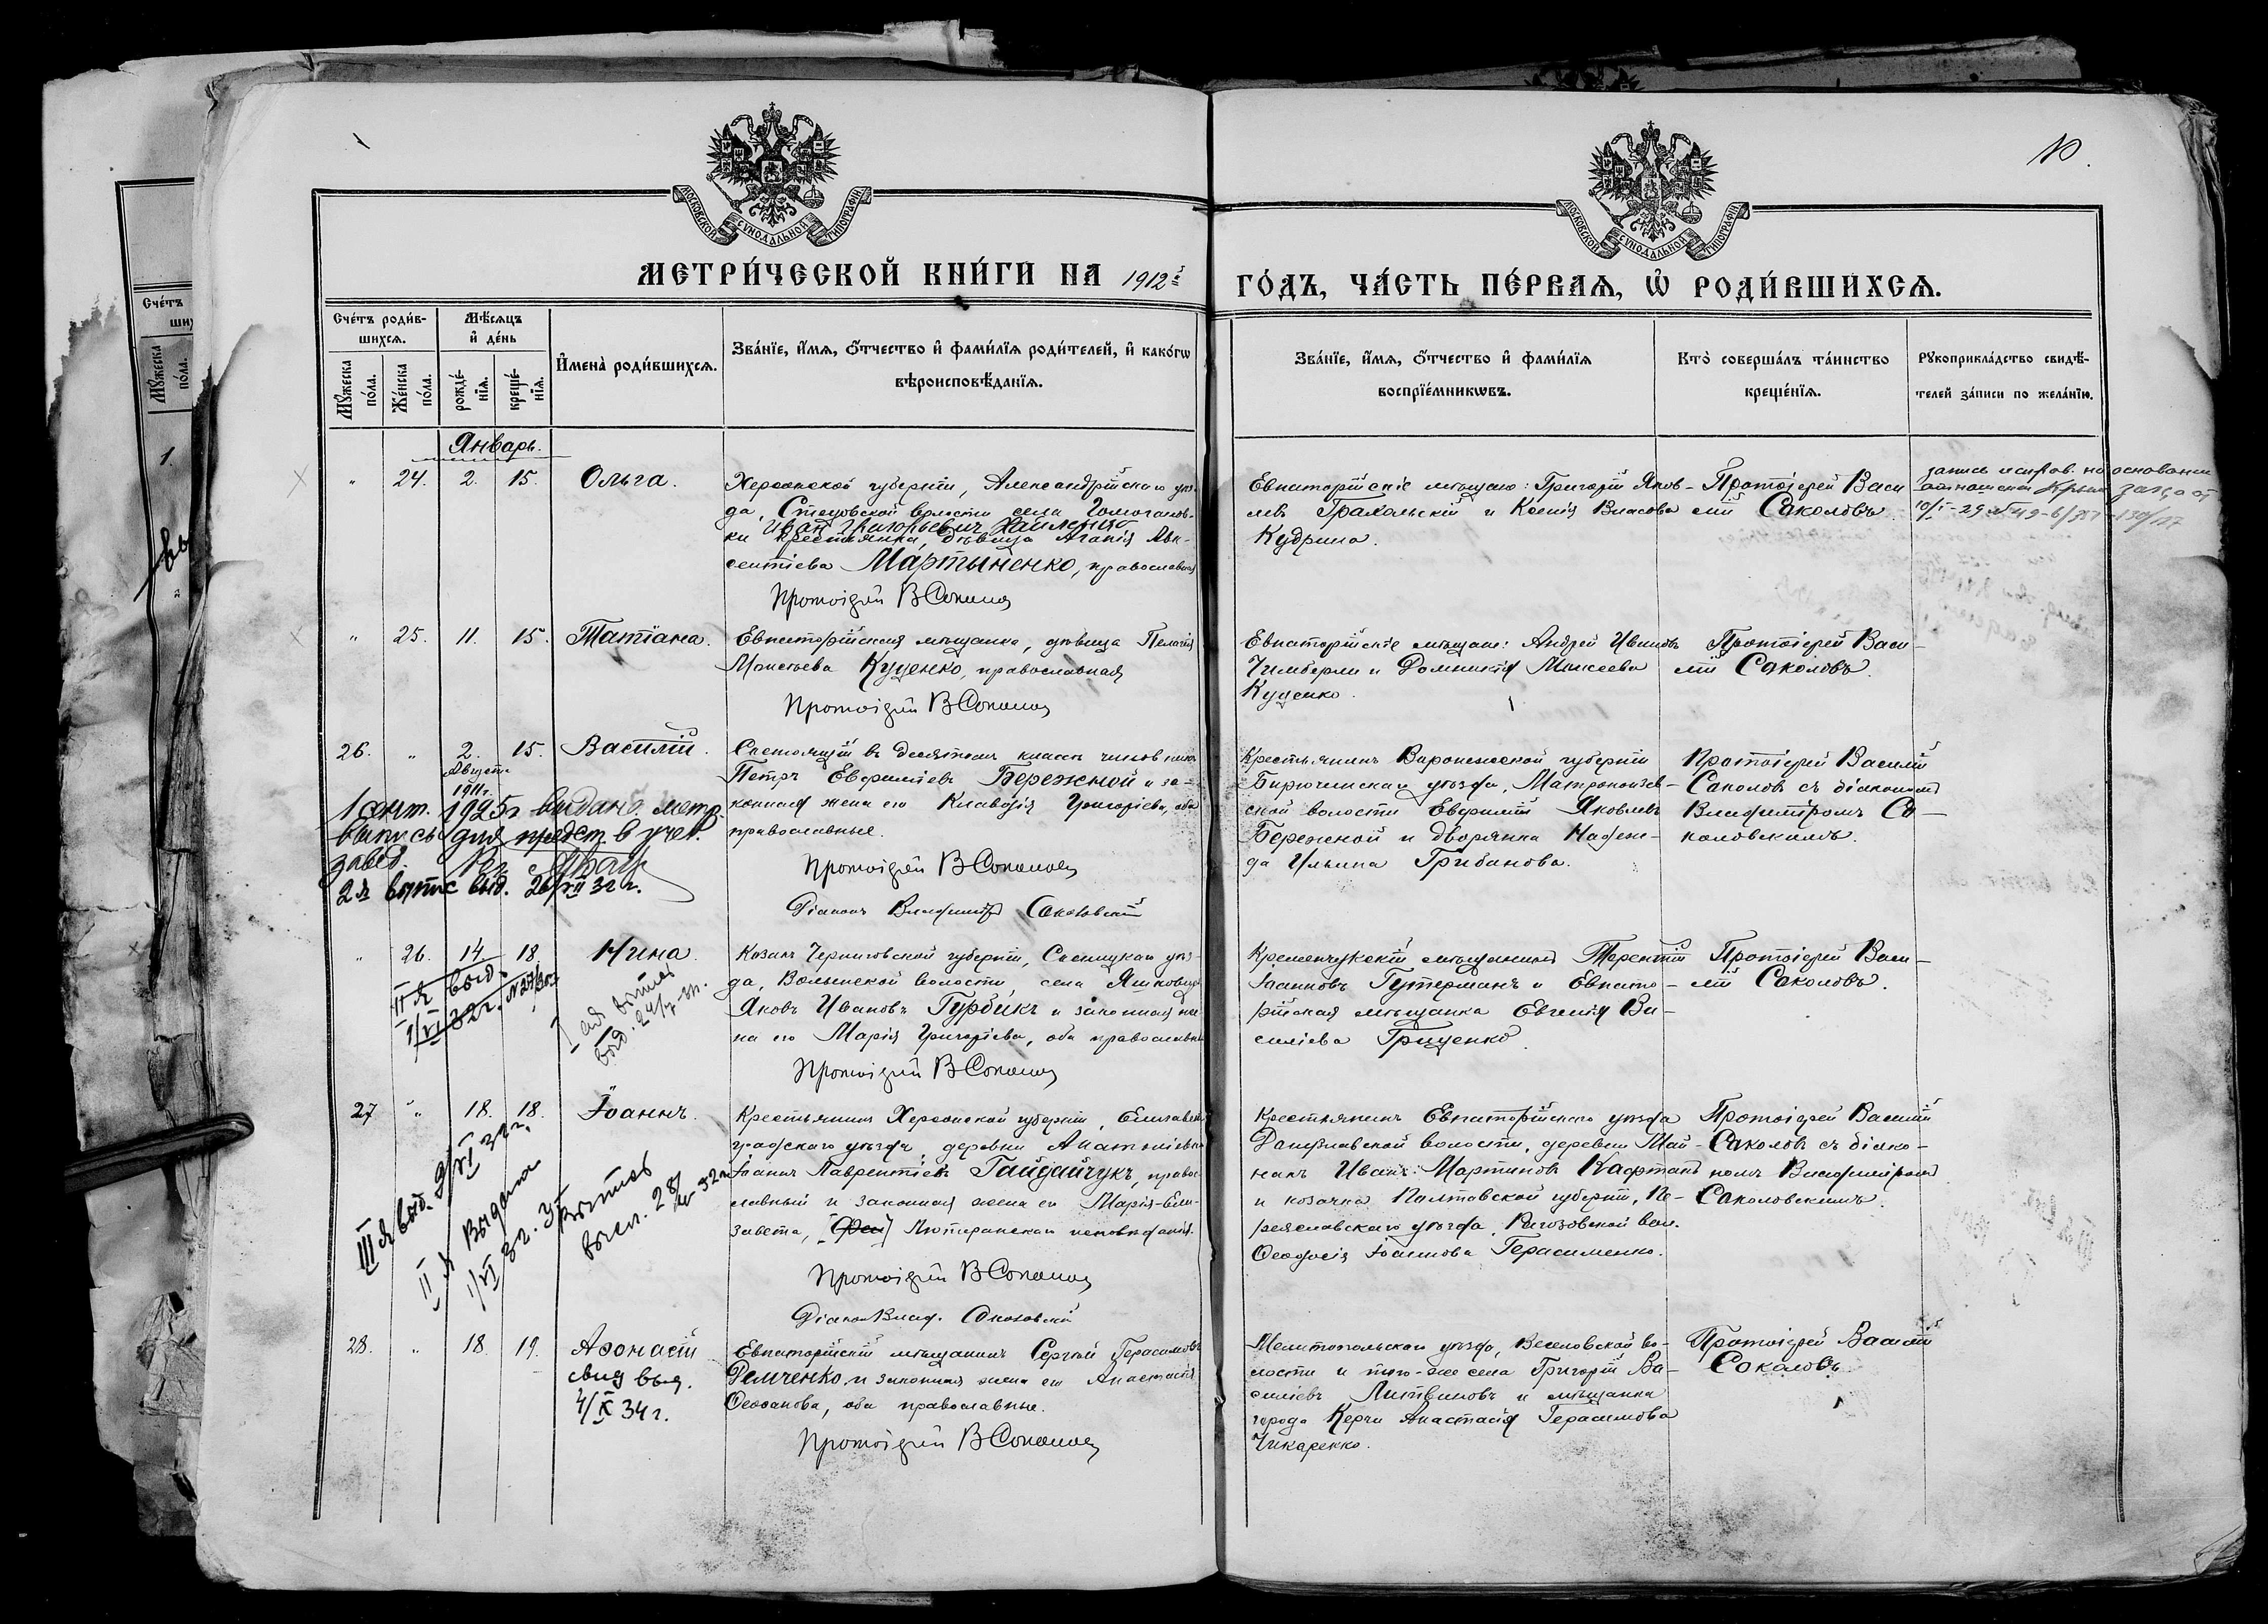 10.
МОСКОВСКОЙ СУНОДАЛЬНОЙ ТИПОГРАФІИ
МОСКОВСКОЙ СУНОДАЛЬНОЙ ТИПОГРАФІИ
МЕТРИ́ЧЕСКОЙ КНИ́ГИ НА 1912й
ГО́ДЪ, ЧА́СТЬ ПЕ́РВАЯ, Ѡ҆ РОДИ́ВШИХСЯ.
Сче́тъ роди́в-
шихся.
Мꙋ́жеска по́ла.
Же́нска по́ла.
Мѣ́сяцъ
и҆ де́нь
рожде́-
нїя.
креще́-
нїя.
И҆мена̀ роди́вшихся.
Зва́нїе, и҆́мя, ѻ҆́тчество и҆ фами́лїя роди́телей, и҆ како́гѡ
вѣроисповѣ́данїя.
Зва́нїе, и҆́мя, ѻ҆́тчество и҆ фами́лїя
воспрїе́мникѡвъ.
Кто̀ соверша́лъ та́инство
креще́нїя.
Рꙋкоприкла́дство свидѣ́-
телей за́писи по жела́нїю.
Январь.
" 24. 2. 15. Ольга.
Херсонской губерніи, Александрійскаго уѣз-
да, волости села
Иван Григорьевич
ки крестьянка, дѣвица Агапія Авк-
сентіева Мартыненко, православная
Протоіерей В Соколов
Евпаторійскіе мѣщане: Григорій Яков-
левъ Грахольскій и Ксенія Власова
Кудрина.
Протоіерей Васи
лій Соколовъ.
запись исправ. на основании
отношения Крым загса от
" 25. 11. 15. Татіана.
Евпаторійская мѣщанка, дѣвица Пелагія
Моисеева Куценко, православная
Протоіерей В Соколов
Евпаторійскіе мѣщане: Андрей Ивановъ
Чимберли и Домникія Моисеева
Куценко.
Протоіерей Васи-
лій Соколовъ.
26. " 2. 15. Василій.
Августа
1911г.
1 сент. 1925г выдана метр.
выпись для предст. в учеб.
завед.
2я выпис выд. 26/VII 32 г.
Состоящій въ десятомъ классѣ чиновникъ
Петръ Евфиміевъ Бережной и за-
конная жена его Клавдія Григоріева, оба
православные.
Протоіерей В Соколов
Діаконъ Владимір Соколовскій
Крестьянинъ Воронежской губерніи
Бирюченскаго уѣзда,
ской волости Евфимій Яковлевъ
Бережной и дворянка Надеж-
да Ильина Грибанова.
Протоіерей Василій
Соколовъ съ діакономъ
Владиміромъ Со-
коловскимъ.
" 26. 14. 18 Нина.
II я выд.
1/VI 32г.
I ая выпись
выд.
Козакъ Черниговской губерніи, Сосницкаго уѣз-
да, Волынской волости, села
Яковъ Ивановъ Гурбикъ и законная же-
на его Марія Григоріева, оба православные
Протоіерей В Соколов
Кременчукскій мѣщанинъ Терентій
Іоанновъ Гутерманъ и Евпато-
рійская мѣщанка Евгенія Ва-
силіева Гриценко.
Протоіерей Васи-
лій Соколовъ.
27 " 18. 18. Іоаннъ.
III я выд. 9/VI 32 г.
II я Выдана
1/VI 32г.
выпись
высл. 28/
Крестьянинъ Херсонской губерніи, Елисавет-
градскаго уѣзда, деревни
Іоаннъ Лаврентіевъ Гайдайчукъ, право-
славный и законная жена его Марія-Ели-
завета, Лютеранскаго исповѣданія.
Протоіерей В Соколов
Діакон Влад. Соколовскій
Крестьянинъ Евпаторійскаго уѣзда
Донузлавской волости, деревни Май-
накъ Иванъ Мартиновъ Кафтанъ
и козачка Полтавской губерніи, Пе-
реяславскаго уѣзда, Рогозовской вол.
Ѳеодосія Іоаннова Герасименко.
Протоіерей Василій
Соколовъ съ діако-
номъ Владиміромъ
Соколовскимъ.
28. " 18. 19. Аѳонасій
свид выд.
4/IX 34 г.
Евпаторійскій мѣщанинъ Сергѣй Герасимовъ
Демченко, и законная жена его Анастасія
Ѳеофанова, оба православные.
Протоіерей В Соколов
Мелитопольскаго уѣзда, Веселовской во-
лости и того-же села Григорій Ва-
силіевъ Литвиновъ и мѣщанка
города Керчи Анастасія Герасимова
Чикаренко.
Протоіерей Василій
Соколовъ.